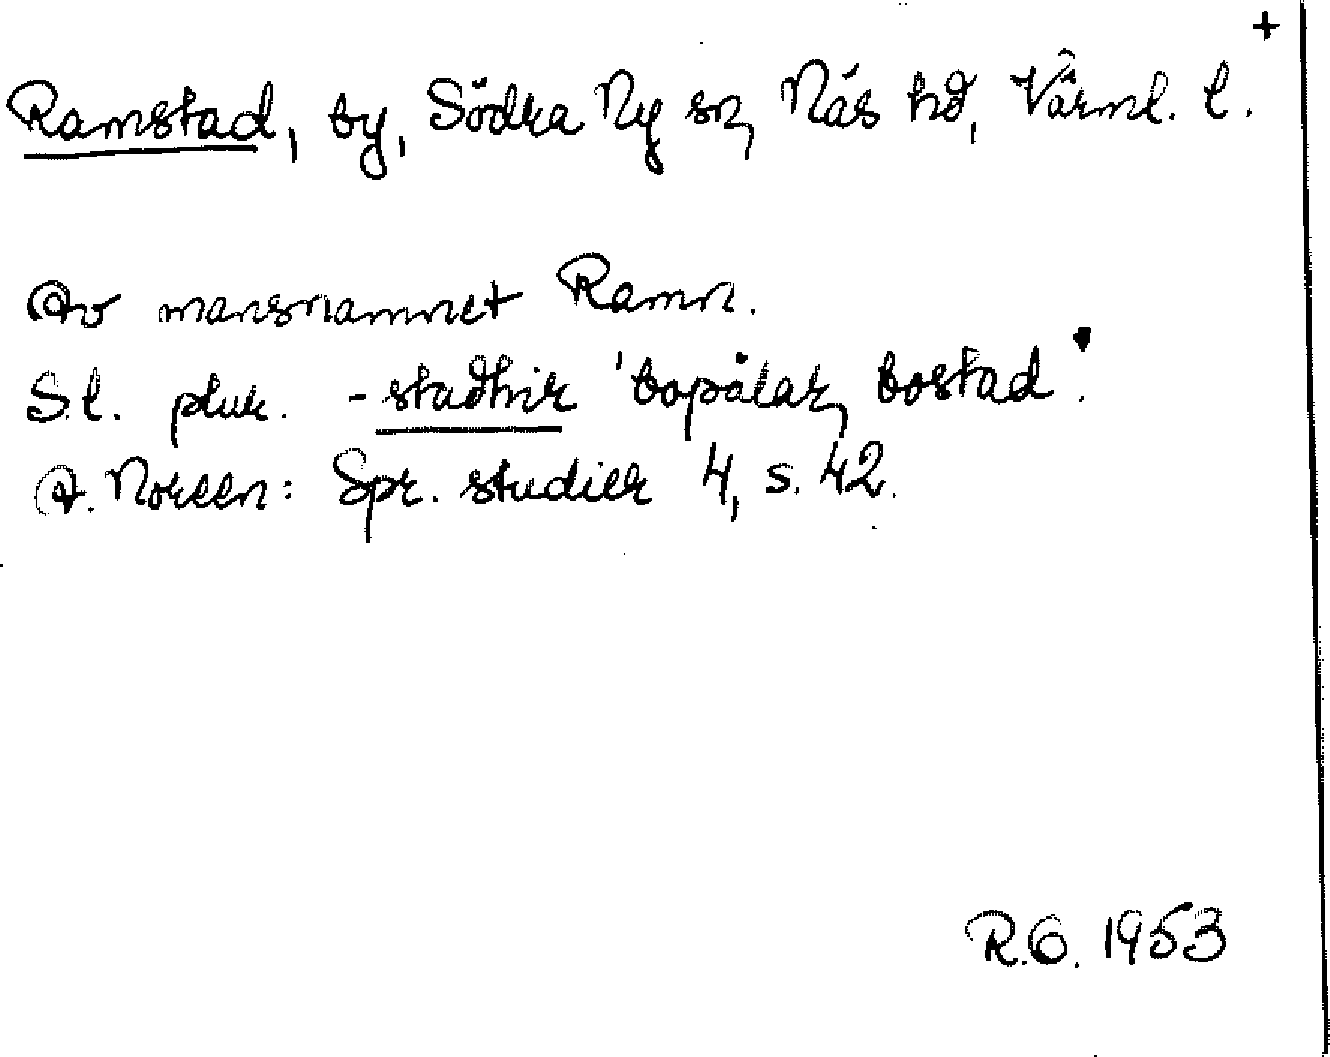 +
Ramstad, by, Södra Ny sn, Näs hd, Värml. l.
Av mansnamnet Ramn.
S.l. plur. -stadhir 'boplats, bostad'.
A. Noreen: Spr. studier 4, s. 42.
R.O. 1953